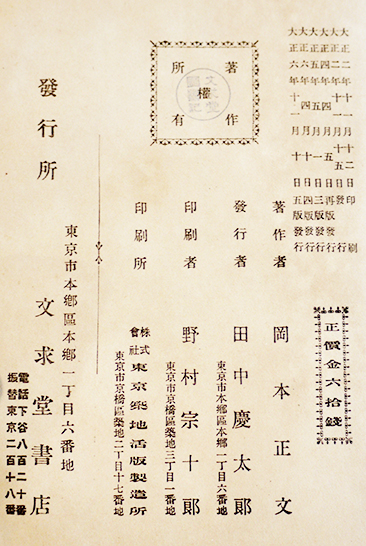 大正二年十一月十二日印刷
大正二年十一月十五日發行
大正四年四月一日再版發行
大正五年五月五日三版發行
大正六年四月日四版發行
大正六年十一月十日五版發行
正價金六拾錢
著作
權
所有
著作者 岡本正文
發行者 田中慶太郎
東京市本鄉區本鄉一丁目六番地
印刷者 野村宗十郎
東京市京橋區築地三丁目一番地
印刷所 株式會社東京築地活版製造所
東京市京橋區築地二丁目十七番地
東京市本鄉區本鄉一丁目六番地
發行所 文求堂書店
電話下谷八百二十番
振替東京二百十八番